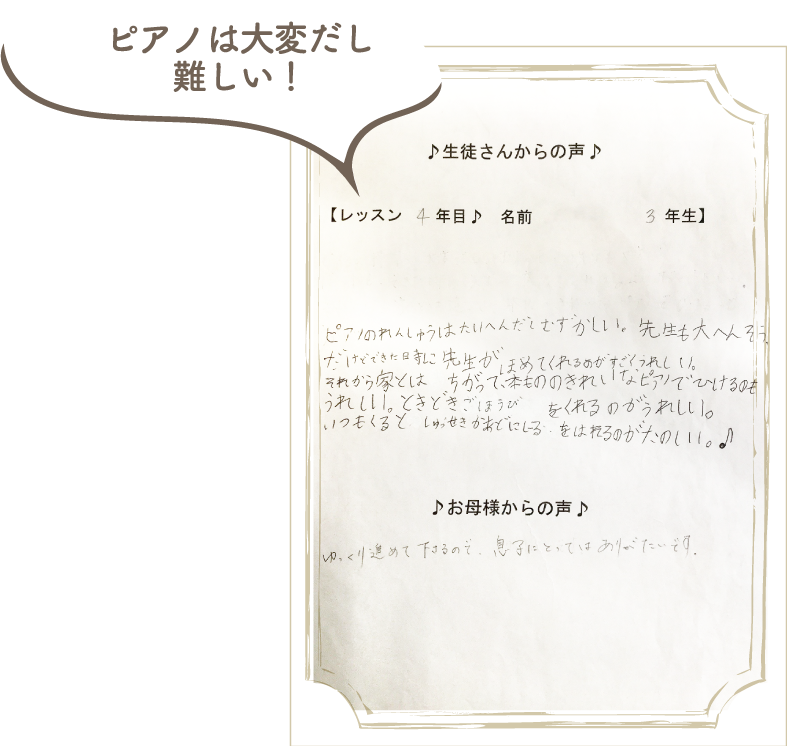 ピアノは大変だし
難しい！
♪生徒さんからの声♪
【レッスン 4 年目♪ 名前 3 年生】
ピアノのれんしゅうはたいへんだしむずかしい。先生も大へんそう。
だけどできた日寺に先生がほめてくれるのがすごくうれしい。
それから家とは ちがって、本もののきれいなピアノでひけるのも
うれしい。ときどきごほうび をくれるのがうれしい。
いつもくると しゅっせきがおどにシール をはれるのがたのしい。♪
♪お母様からの声♪
ゆっくり進めて下さるので、息子にとってはありがたいです。